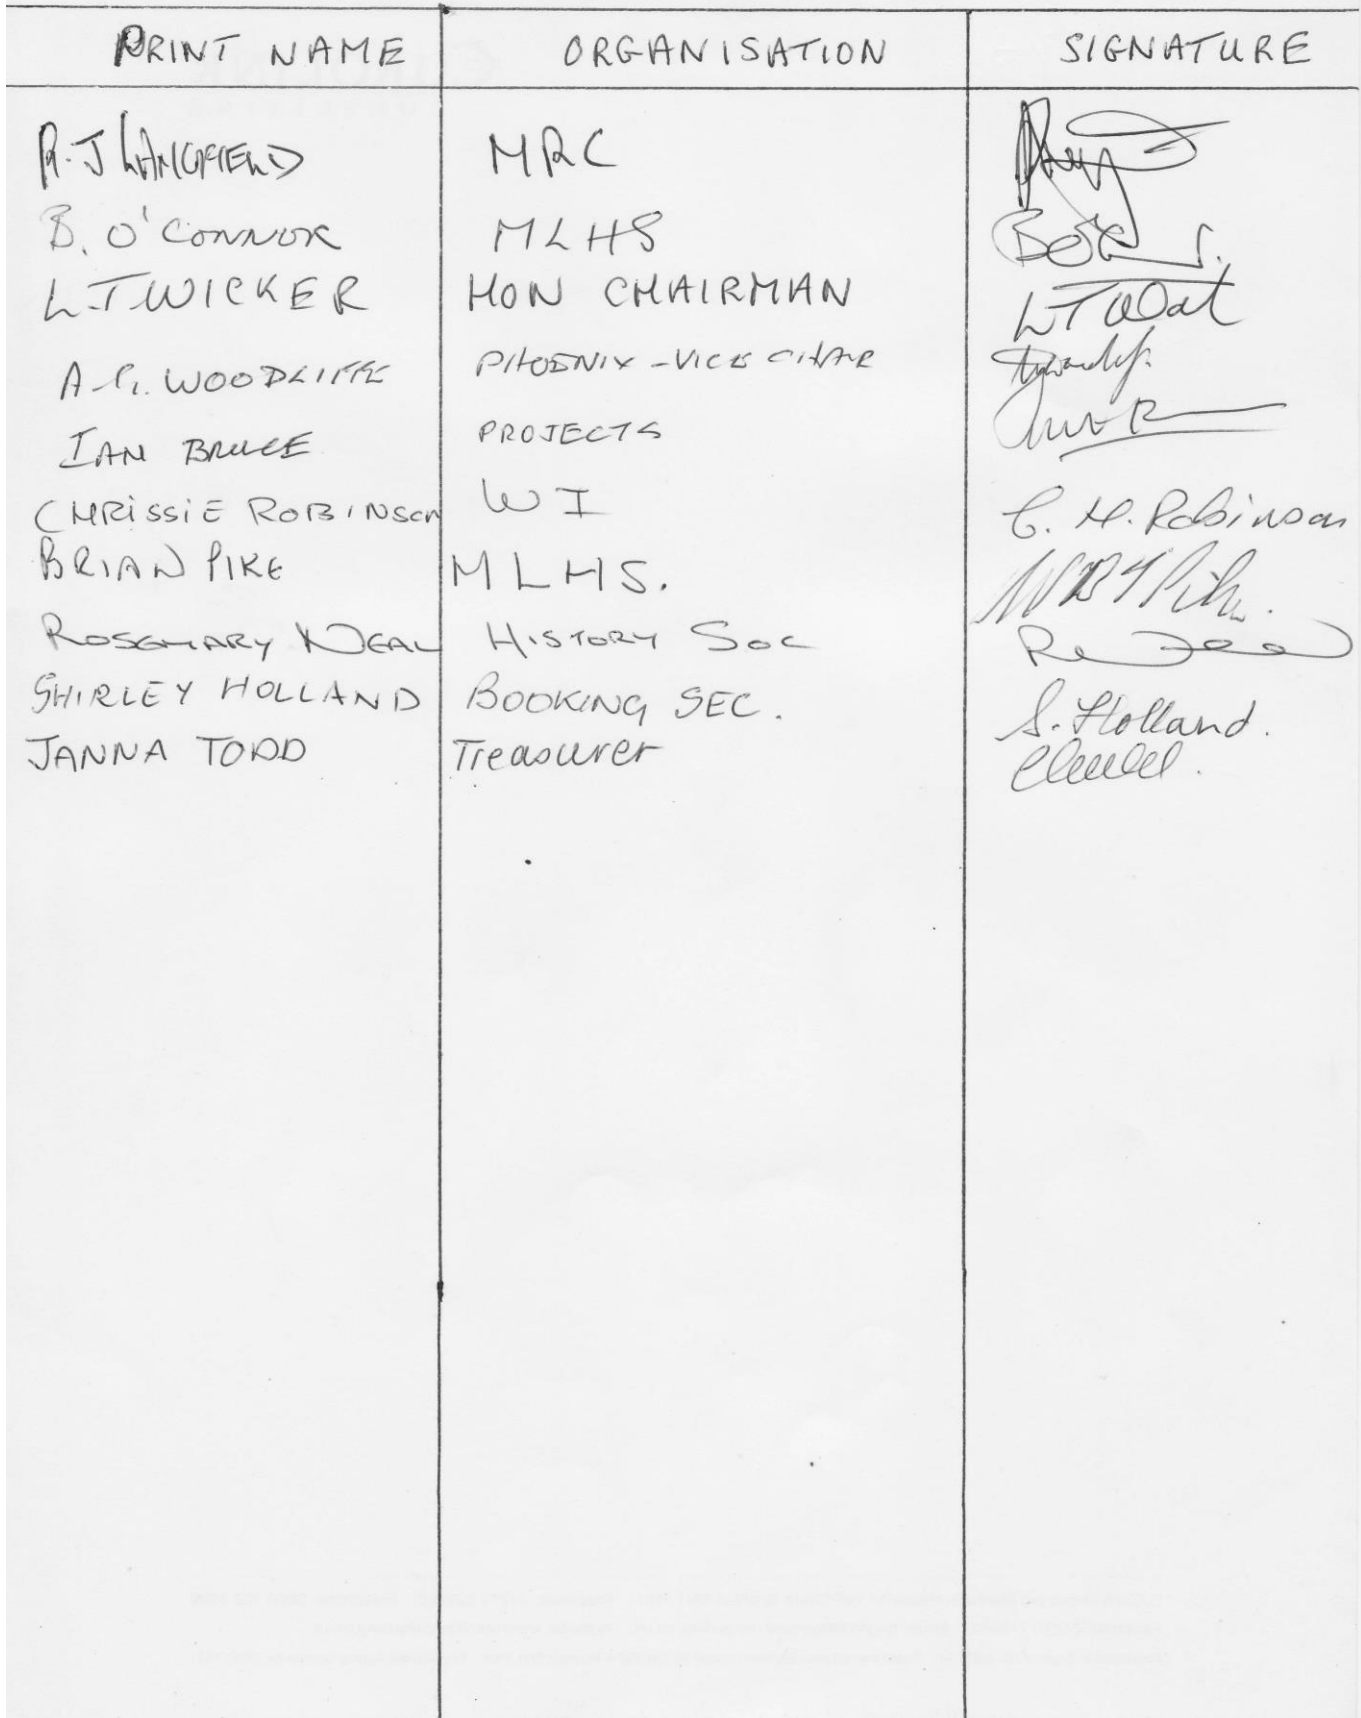 PRINT NAME ORGANISATION SIGNATURE
R.J LANGFIELD MRC
B. O'CONNOR MLHS
L.T WICKER HON CHAIRMAN
A.G. WOODLIFFE PHOENIX - VICE CHAIR
IAN BRUCE PROJECTS
CHRISSIE ROBINSON W I C. M. Robinson
BRIAN PIKE MLHS.
ROSEMARY NEAL HISTORY SOC
SHIRLEY HOLLAND BOOKING SEC. S. Holland.
JANNA TODD Treasurer